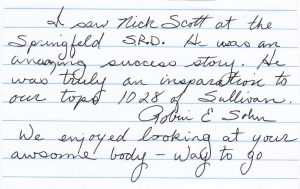 I saw Nick Scott at the
Springfeld S.R.D. He was an
amazing success story. He
was truly an insparation to
our tops 1028 of Sullivan.
Robin E Sohn
We enjoyed looking at your
awsome body - Way to go